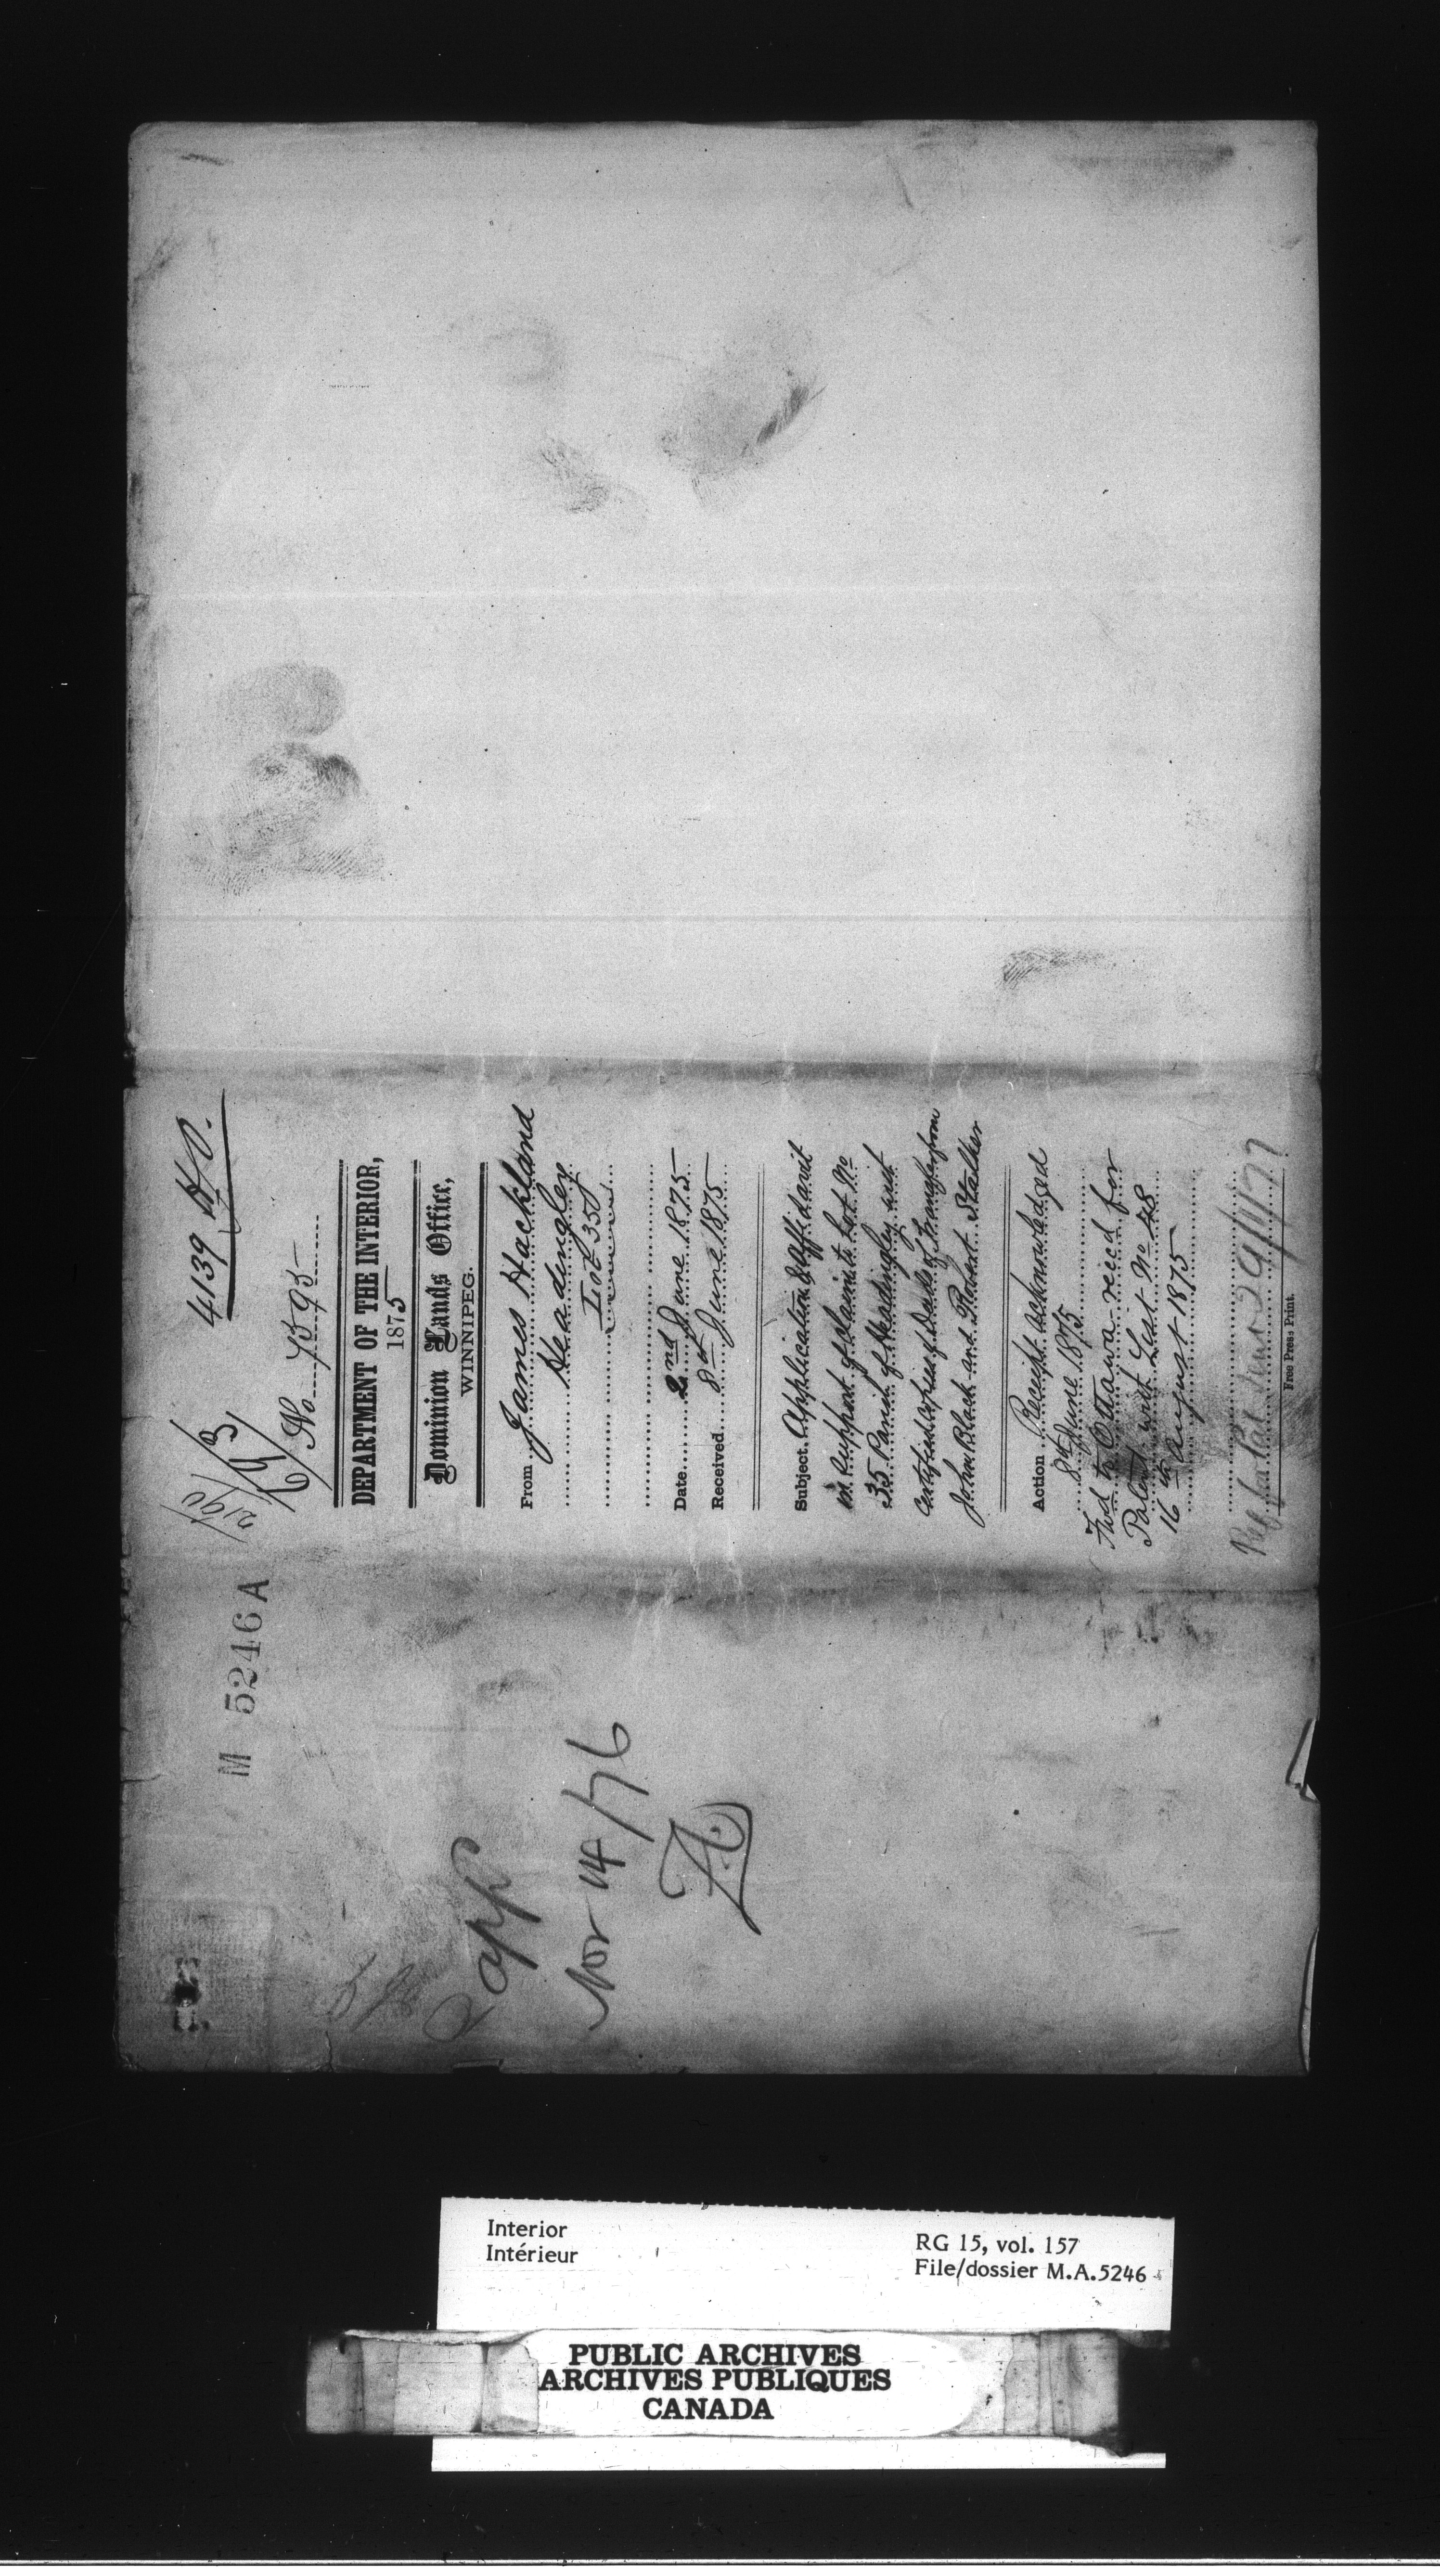 4139 H.O.
No 7595
DEPARTMENT OF THE INTERIOR,
1875
Dominion Lands Office,
WINNIPEG.
From James Hackland
Headingley
Lot 35
Date 2nd June 1875
Received 8th June 1875
Subject. Application & Affidavit
in support of claim to Lot No
35 Parish of Headingley and
Certified copies of Deeds of Transfer from
John Black and Robert Stalker
Action Receipt acknowledged
8th June 1875
Fwd to Ottawa recd for
Patent with List No 48
16th August 1875
29/11/77
Free Press Print.
M 5246 A
app
Nov 14/76
Interior
Intérieur
RG 15, vol. 157
File/dossier M.A.5246
PUBLIC ARCHIVES
ARCHIVES PUBLIQUES
CANADA